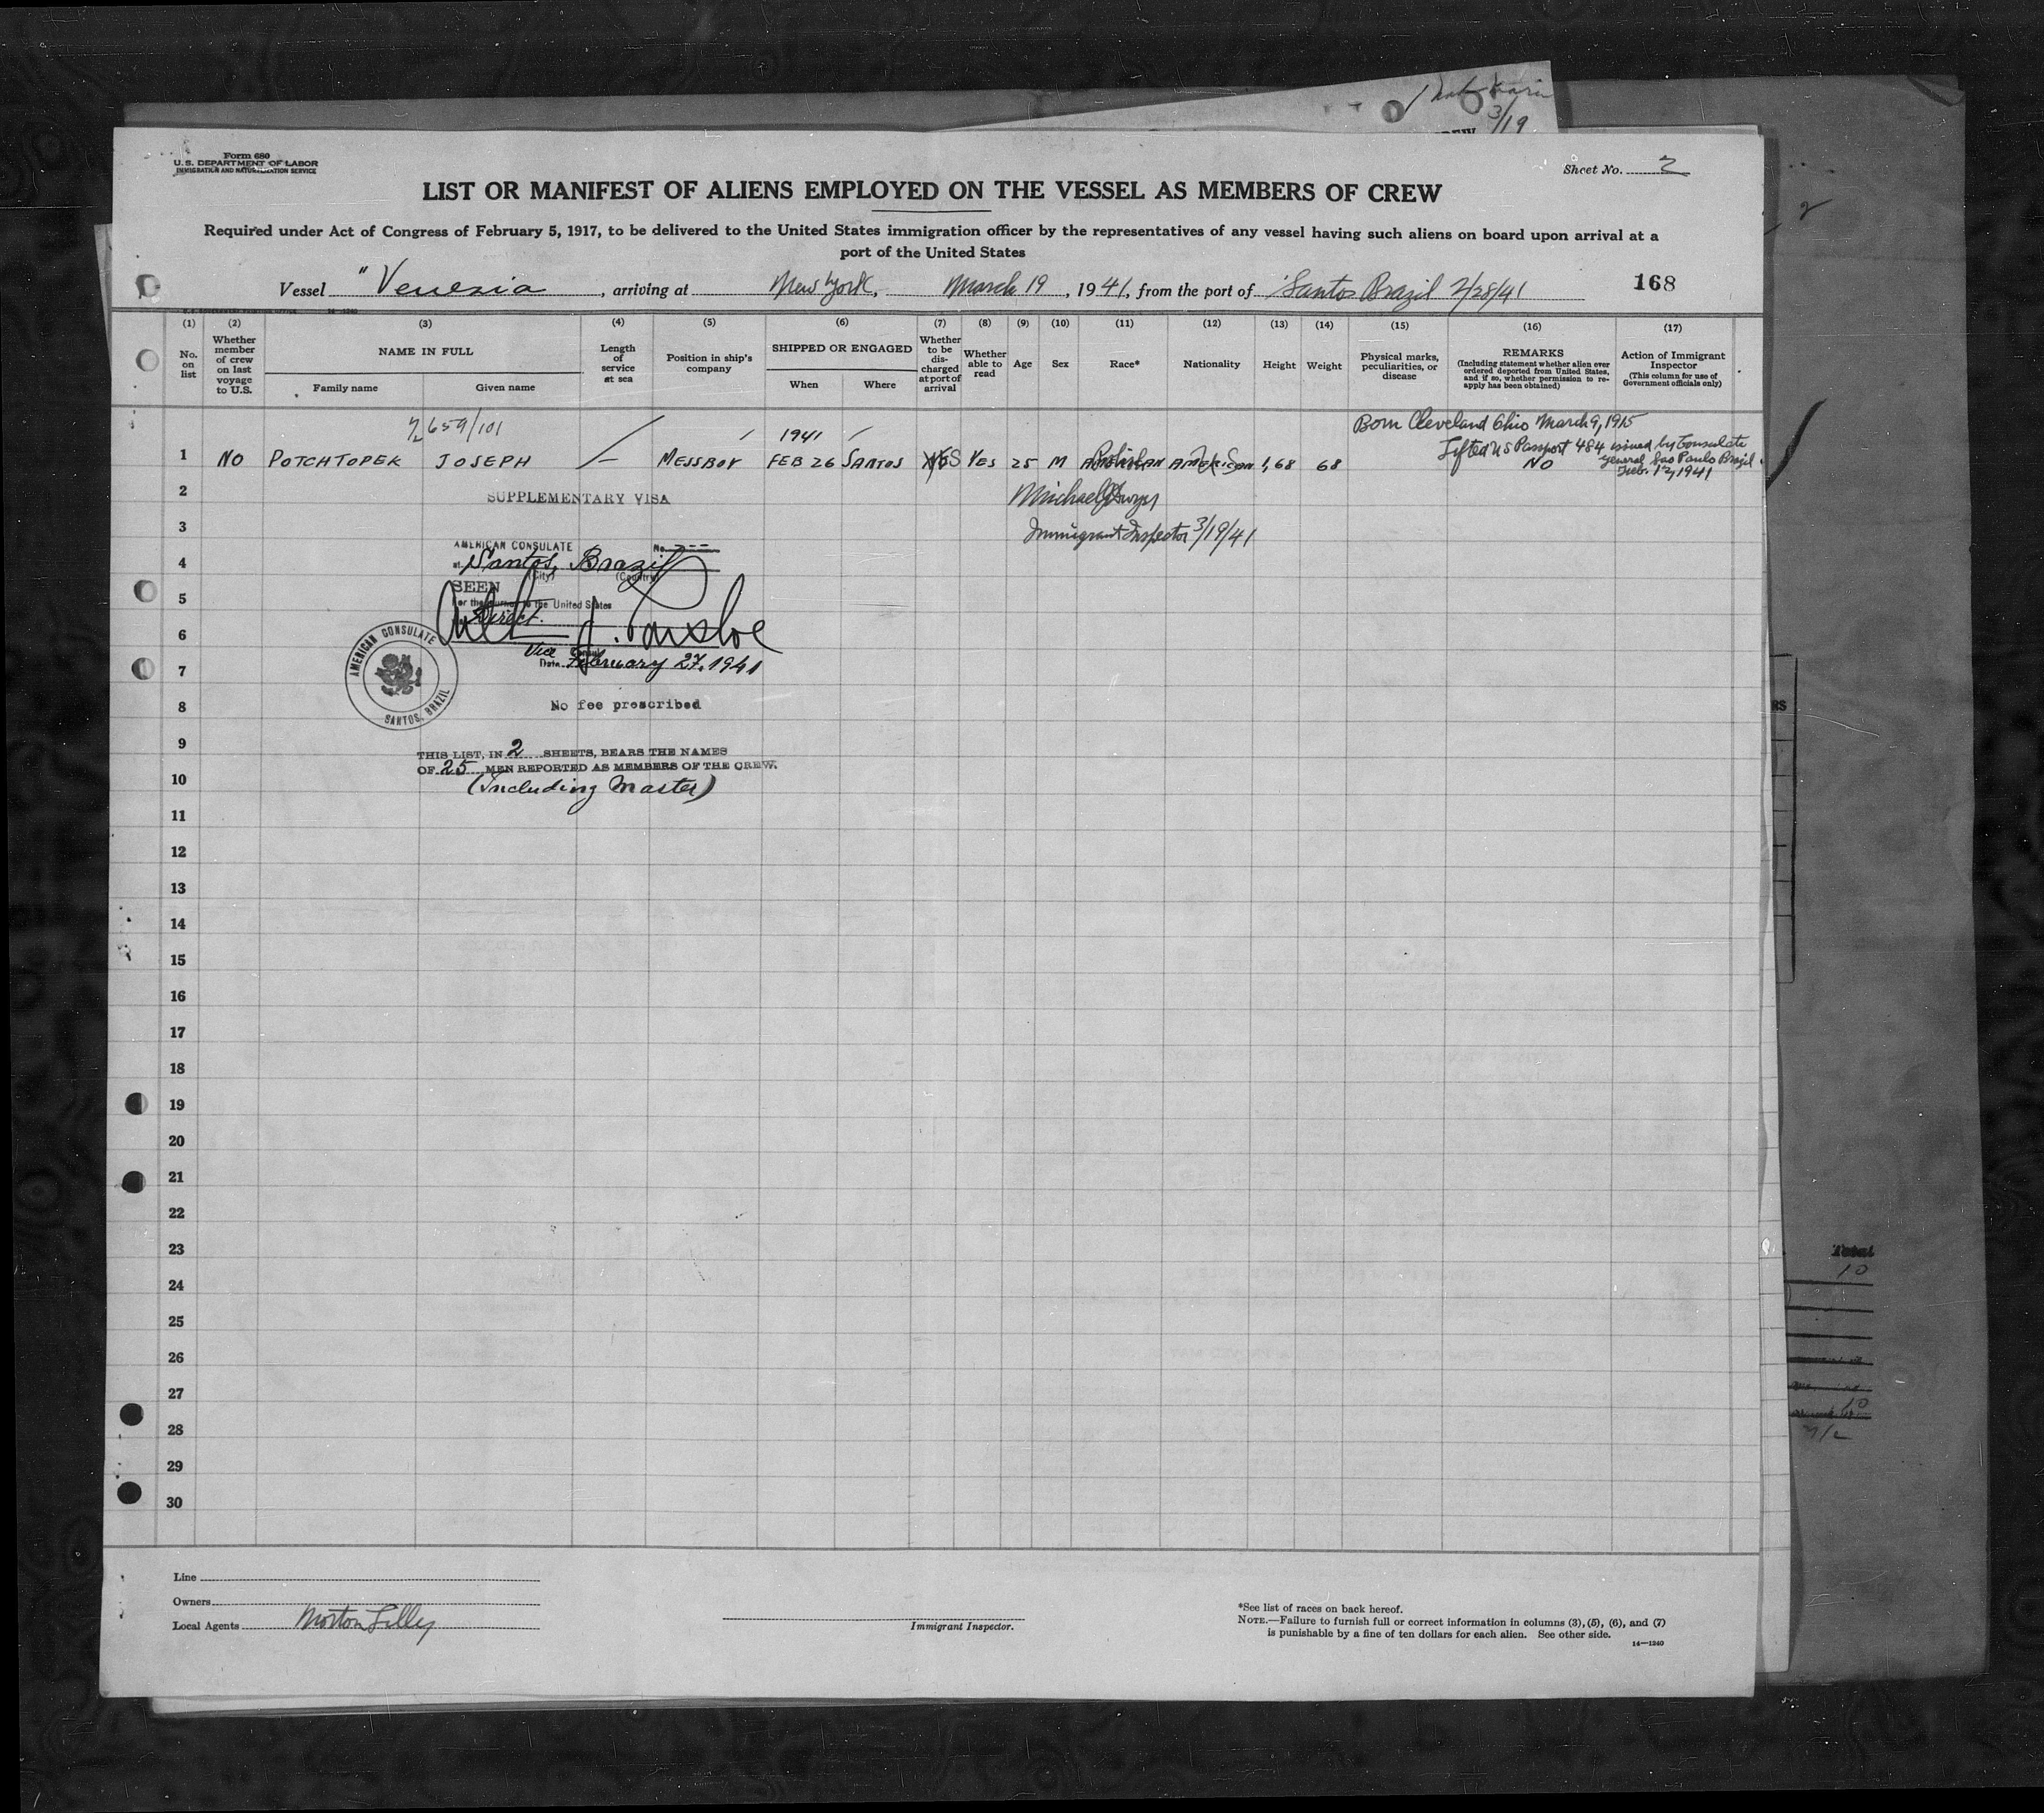 3/19
Form 680
U.S. DEPARTMENT OF LABOR
IMMIGRATION AND NATURALIZATION SERVICE
Sheet No. 2
LIST OR MANIFEST OF ALIENS EMPLOYED ON THE VESSEL AS MEMBERS OF CREW
Required under Act of Congress of February 5, 1917, to be delivered to the United States immigration officer by the representatives of any vessel having such aliens on board upon arrival at a
port of the United States
Vessel "Venezia, arriving at New York, March 19, 1941, from the port of Santos Brazil 2/28/41 168
(1) (2) (3) (4) (5) (6) (7) (8) (9) (10) (11) (12) (13) (14) (15) (16) (17)
No. on list
Whether member of crew on last voyage to U.S.
NAME IN FULL
Family name
Given name
Length of service at sea
Position in ship's company
SHIPPED OR ENGAGED
When
Where
Whether to be discharged at port of arrival
Whether able to read
Age
Sex
Race*
Nationality
Height
Weight
Physical marks, peculiarities, or disease
REMARKS
(Including statement whether alien ever ordered deported from United States, and if so, whether permission to reapply has been obtained)
Action of Immigrant Inspector
(This column for use of Government officials only)
Born Cleveland Ohio March 9, 1915
659/101
1941
Lifted US Passport 484 issued by Consulate
General Sao Paulo Brazil
Feb. 12, 1941
1 NO POTCHTOPEK JOSEPH — MESSBOY FEB 26 SANTOS YES YES 25 M AMERICAN 1,68 68 NO
2
SUPPLEMENTARY VISA
Michael Dwyer
3
Immigrant Inspector 3/19/41
AMERICAN CONSULATE No. ---
4
at Santos, Brazil
(City) (Country)
SEEN
5
For the journey to the United States
Direct.
6
Vice Consul
7
Date February 27, 1941
AMERICAN CONSULATE
SANTOS, BRAZIL
8
No fee prescribed
9
THIS LIST, IN 2 SHEETS, BEARS THE NAMES
OF 25 MEN REPORTED AS MEMBERS OF THE CREW.
10
(Including Master)
11
12
13
14
15
16
17
18
19
20
21
22
23
24
25
26
27
28
29
30
Total
10
Line
Owners
Local Agents Morton Lilly
Immigrant Inspector.
*See list of races on back hereof.
NOTE.—Failure to furnish full or correct information in columns (3), (5), (6), and (7)
is punishable by a fine of ten dollars for each alien. See other side.
14—1240